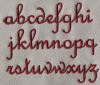 abcdefghi
jklmnopq
rstuvwxyz